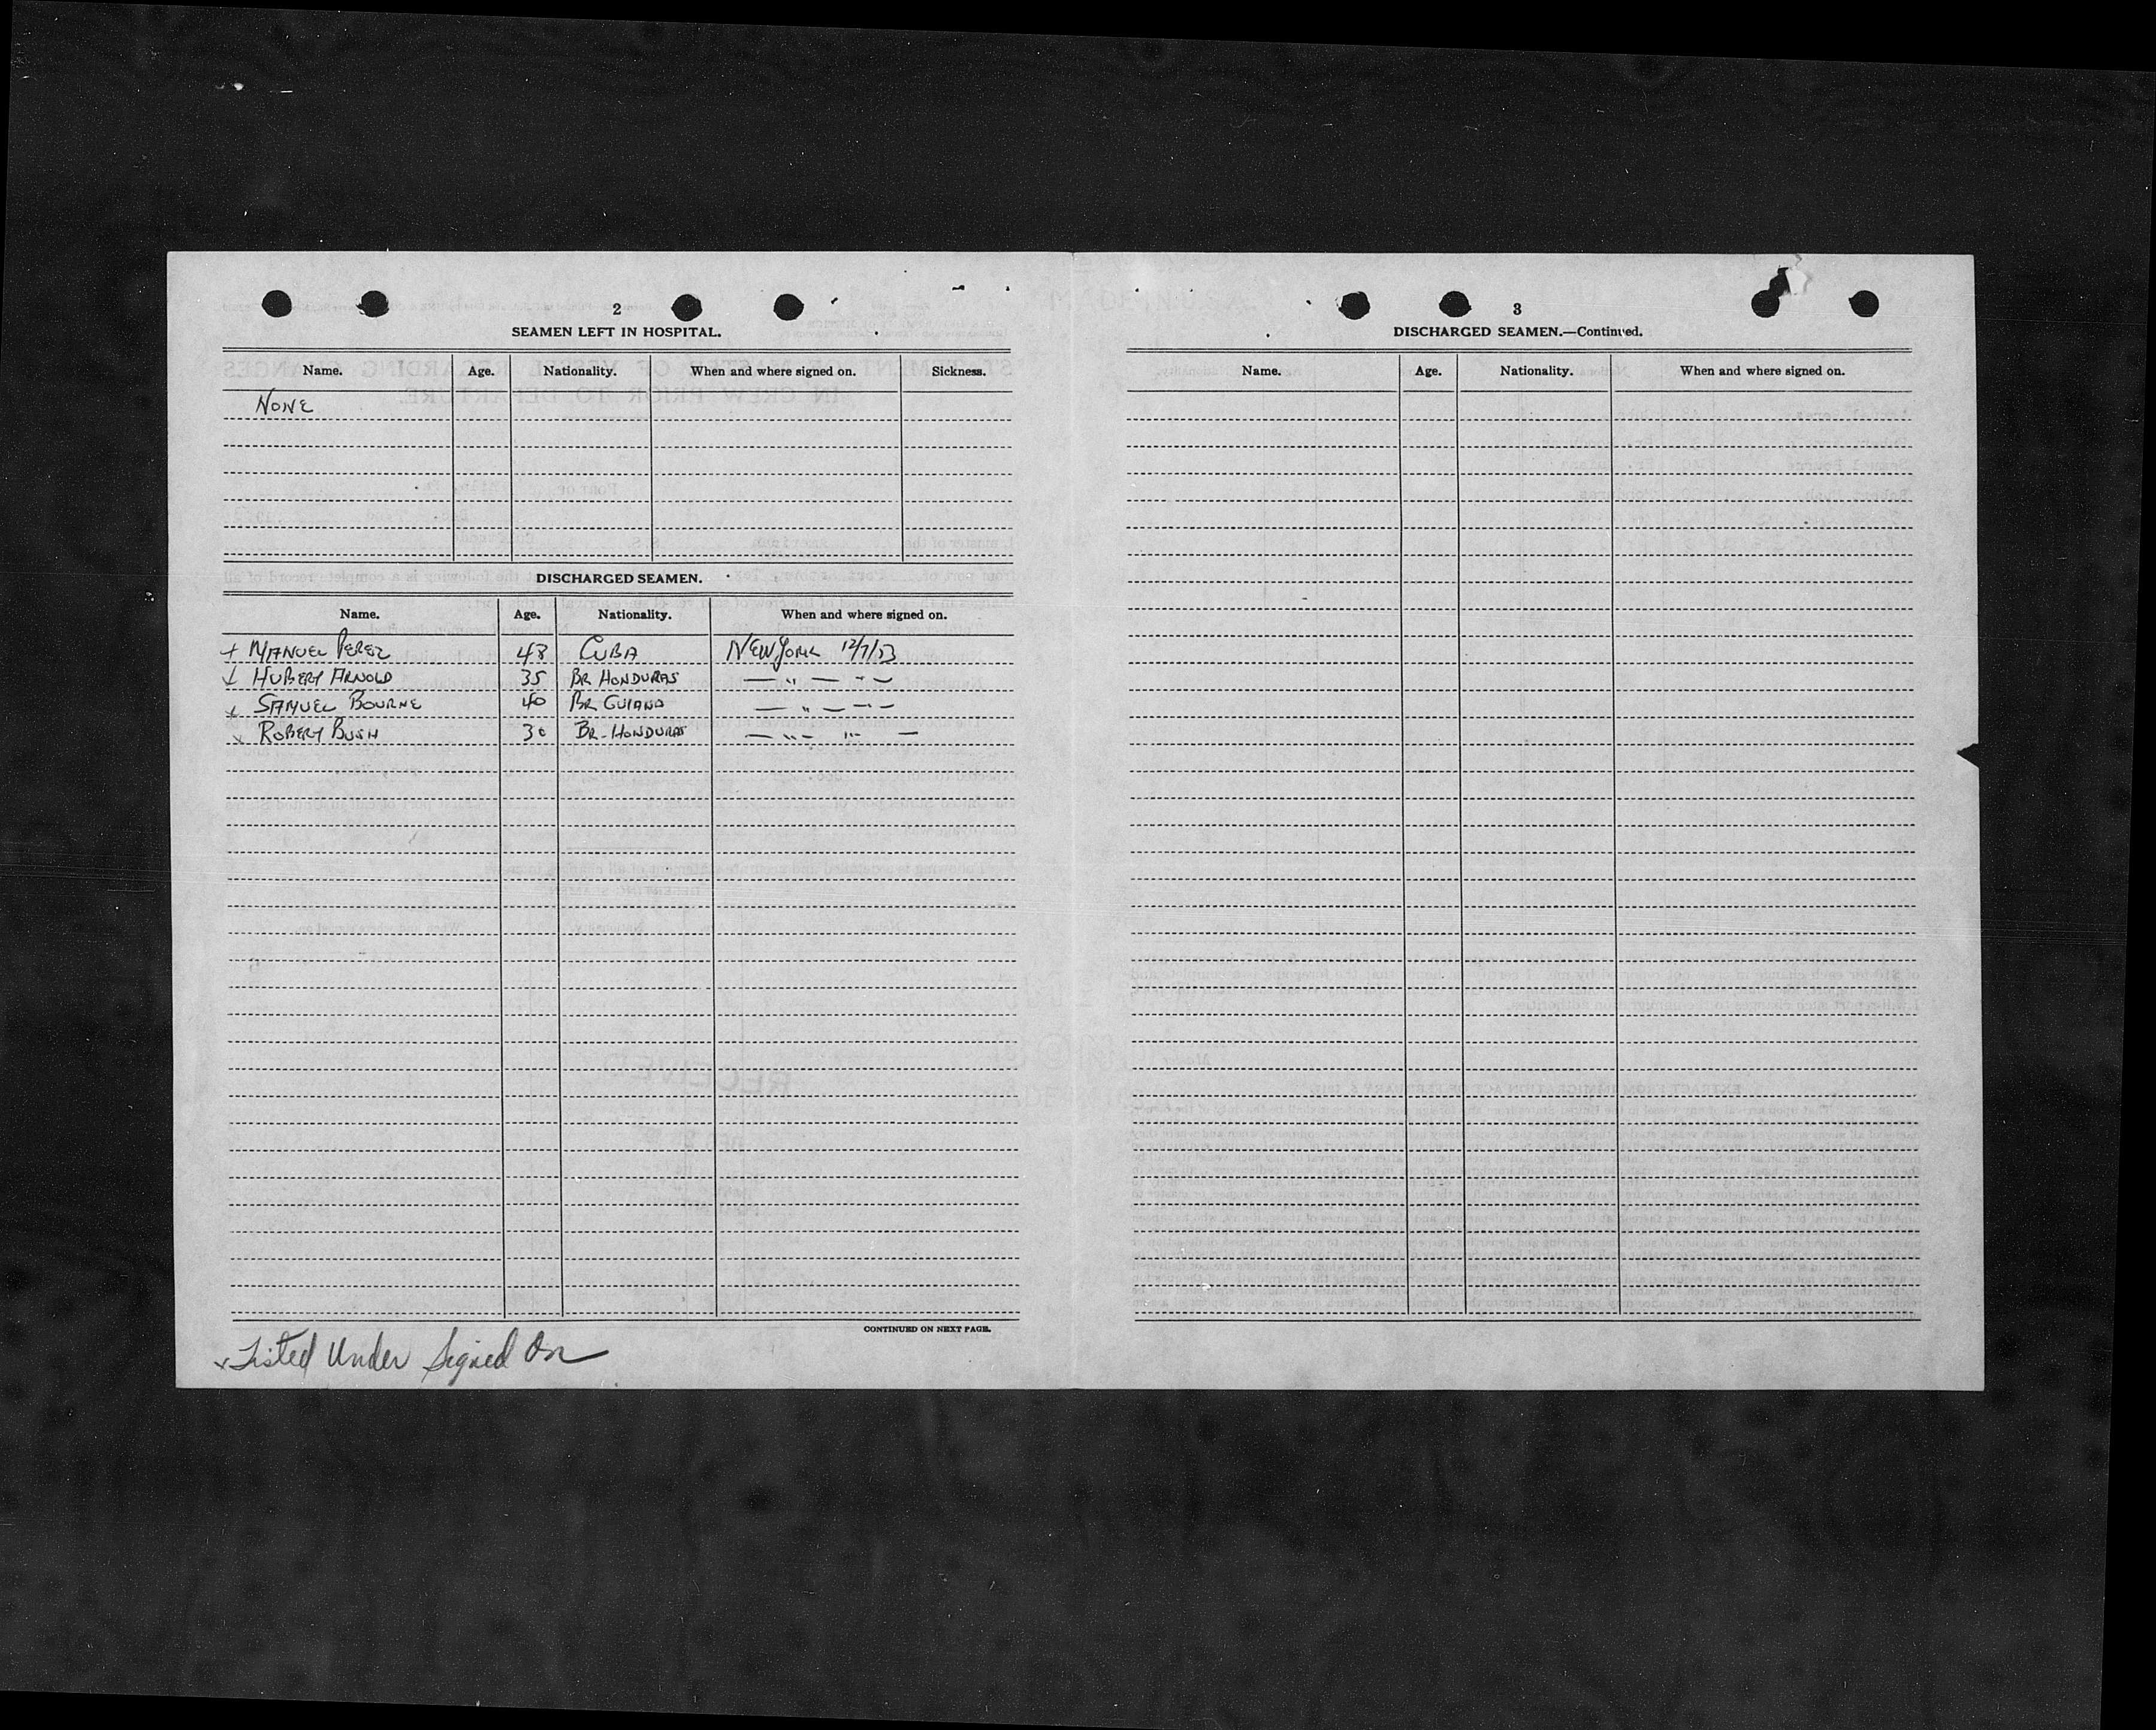 2
SEAMEN LEFT IN HOSPITAL.
Name. Age. Nationality. When and where signed on. Sickness.
NONE
DISCHARGED SEAMEN.
Name. Age. Nationality. When and where signed on.
+ MANUEL PEREZ 48 CUBA NEW YORK 12/7/53
x HUBERT ARNOLD 35 BR HONDURAS — " — " —
x SAMUEL BOURNE 40 BR GUIANA — " — " —
x ROBERT BUSH 30 BR-HONDURAS — " — " —
CONTINUED ON NEXT PAGE.
x Listed Under Signed On
3
DISCHARGED SEAMEN.—Continued.
Name. Age. Nationality. When and where signed on.